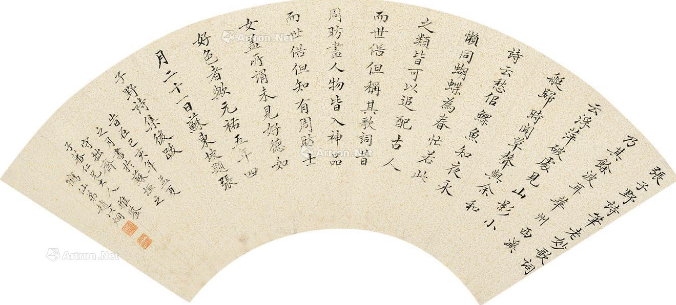 張子野詩筆老妙歌詞
乃其餘波耳華州西溪
云浮萍破處見山影小
艇歸時聞草聲與余和
詩云愁佀鰥魚知夜永
懶同蝴蝶為春忙若此
之類皆可以追配古人
而世俗但稱其歌詞昔
周昉畫人物皆入神品
而世俗但知有周昉士
女盖所謂未見好德如
好色者歟元祐五年四
月二十一日蘇東坡題張
子野詩集後跋